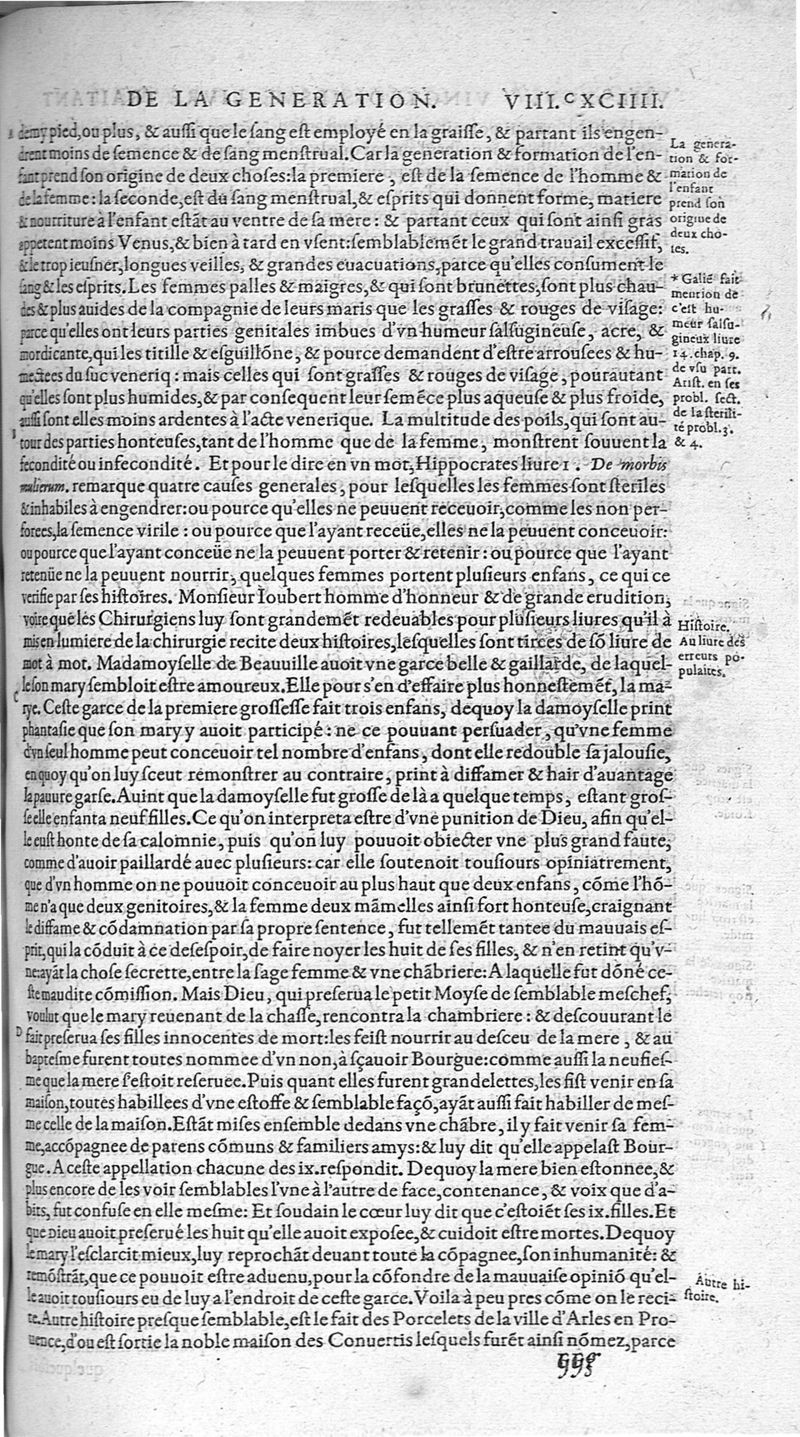 DE LA GENERATION. VIII.ᶜXCIIII.
demy pied, ou plus, & auſſi que le ſang eſt employé en la graiſſe, & partant ils engen-
drent moins de ſemence & de ſang menſtrual. Car la generation & formation de l'en-
fant prend ſon origine de deux choſes: la premiere, eſt de la ſemence de l'homme &
de la femme: la ſeconde, eſt du ſang menſtrual, & eſprits qui donnent forme, matiere
& nourriture à l'enfant eſtãt au ventre de ſa mere: & partant ceux qui ſont ainſi gras
appetent moins Venus, & bien à tard en vſent: ſemblablemẽt le grand trauail exceſſif,
& le trop ieuſner, longues veilles, & grandes euacuations, parce qu'elles conſument le
ſang & les eſprits. Les femmes palles & maigres, & qui ſont brunettes, ſont plus chau-
des & plus auides de la compagnie de leurs maris que les graſſes & rouges de viſage:
parce qu'elles ont leurs parties genitales imbues d'vn humeur ſalſugineuſe, acre, &
mordicante, qui les titille & eſguillõne, & pource demandent d'eſtre arrouſees & hu-
mectees du ſuc veneriq: mais celles qui ſont graſſes & rouges de viſage, pourautant
qu'elles ſont plus humides, & par conſequent leur ſemẽce plus aqueuſe & plus froide,
auſſi ſont elles moins ardentes à l'acte venerique. La multitude des poils, qui ſont au-
tour des parties honteuſes, tant de l'homme que de la femme, monſtrent ſouuent la
fecondité ou infecondité. Et pour le dire en vn mot, Hippocrates liure 1. De morbis
mulierum. remarque quatre cauſes generales, pour leſquelles les femmes ſont ſteriles
& inhabiles à engendrer: ou pource qu'elles ne peuuent receuoir, comme les non per-
forees, la ſemence virile: ou pource que l'ayant receüe, elles ne la peuuent conceuoir:
ou pource que l'ayant conceüe ne la peuuent porter & retenir: ou pource que l'ayant
retenüe ne la peuuent nourrir, quelques femmes portent pluſieurs enfans, ce qui ce
verifie par ſes hiſtoires. Monſieur Ioubert homme d'honneur & de grande erudition,
voire que les Chirurgiens luy ſont grandemẽt redeuables pour pluſieurs liures qu'il à
mis en lumiere de la chirurgie recite deux hiſtoires, leſquelles ſont tirees de ſõ liure de
mot à mot. Madamoyſelle de Beauuille auoit vne garce belle & gaillarde, de laquel-
le ſon mary ſembloit eſtre amoureux. Elle pour s'en d'effaire plus honneſtemẽt, la ma-
rye. Ceſte garce de la premiere groſſeſſe fait trois enfans, dequoy la damoyſelle print
phantaſie que ſon mary y auoit participé: ne ce pouuant perſuader, qu'vne femme
d'vn ſeul homme peut conceuoir tel nombre d'enfans, dont elle redouble ſa jalouſie,
en quoy qu'on luy ſceut remonſtrer au contraire, print à diffamer & hair d'auantage
la pauure garſe. Auint que la damoyſelle fut groſſe de là a quelque temps, eſtant groſ-
ſe elle enfanta neuf filles. Ce qu'on interpreta eſtre d'vne punition de Dieu, afin qu'el-
le euſt honte de ſa calomnie, puis qu'on luy pouuoit obiecter vne plus grand faute,
comme d'auoir paillardé auec pluſieurs: car elle ſoutenoit touſiours opiniatrement,
que d'vn homme on ne pouuoit conceuoir au plus haut que deux enfans, cõme l'hõ-
me n'a que deux genitoires, & la femme deux mãmelles ainſi fort honteuſe, craignant
le diffame & cõdamnation par ſa propre ſentence, fut tellemẽt tantee du mauuais eſ-
prit, qui la cõduit à ce deſeſpoir, de faire noyer les huit de ſes filles, & n'en retint qu'v-
ne: ayãt la choſe ſecrette, entre la ſage femme & vne chãbriere: A laquelle fut dõné ce-
ſte maudite cõmiſſion. Mais Dieu, qui preſerua le petit Moyſe de ſemblable meſchef,
voulut que le mary reuenant de la chaſſe, rencontra la chambriere: & deſcouurant le
D fait preſerua ſes filles innocentes de mort: les feiſt nourrir au deſceu de la mere, & au
bapteſme furent toutes nommee d'vn non, à ſçauoir Bourgue: comme auſſi la neufieſ-
me que la mere ſ'eſtoit reſeruee. Puis quant elles furent grandelettes, les fiſt venir en ſa
maiſon, toutes habillees d'vne eſtoffe & ſemblable façõ, ayãt auſſi fait habiller de meſ-
me celle de la maiſon. Eſtãt miſes enſemble dedans vne chãbre, il y fait venir ſa fem-
me, accõpagnee de parens cõmuns & familiers amys: & luy dit qu'elle appelaſt Bour-
gue. A ceſte appellation chacune des ix. reſpondit. Dequoy la mere bien eſtonnee, &
plus encore de les voir ſemblables l'vne à l'autre de face, contenance, & voix que d'a-
bits, fut confuſe en elle meſme: Et ſoudain le cœur luy dit que c'eſtoiẽt ſes ix. filles. Et
que Dieu auoit preſerué les huit qu'elle auoit expoſee, & cuidoit eſtre mortes. Dequoy
le mary l'eſclarcit mieux, luy reprochãt deuant toute la cõpagnee, ſon inhumanité: &
remõſtrãt, que ce pouuoit eſtre aduenu, pour la cõfondre de la mauuaiſe opiniõ qu'el-
le auoit touſiours eu de luy a l'endroit de ceſte garce. Voila à peu pres cõme on le reci-
te. Autre hiſtoire preſque ſemblable, eſt le fait des Porcelets de la ville d'Arles en Pro-
uence, d'ou eſt ſortie la noble maiſon des Conuertis leſquels furẽt ainſi nõmez, parce
La genera-
tion & for-
mation de
l'enfant
prend ſon
origine de
deux cho-
ſes.
* Galiẽ fait
mention de
c'eſt hu-
meur ſalſu-
gineux liure
14. chap. 9.
de vſu part.
Ariſt. en ſes
probl. ſect.
de la ſterili-
té probl. 3.
& 4.
Hiſtoire.
Au liure des
erreurs po-
pulaires.
Autre hi-
ſtoire.